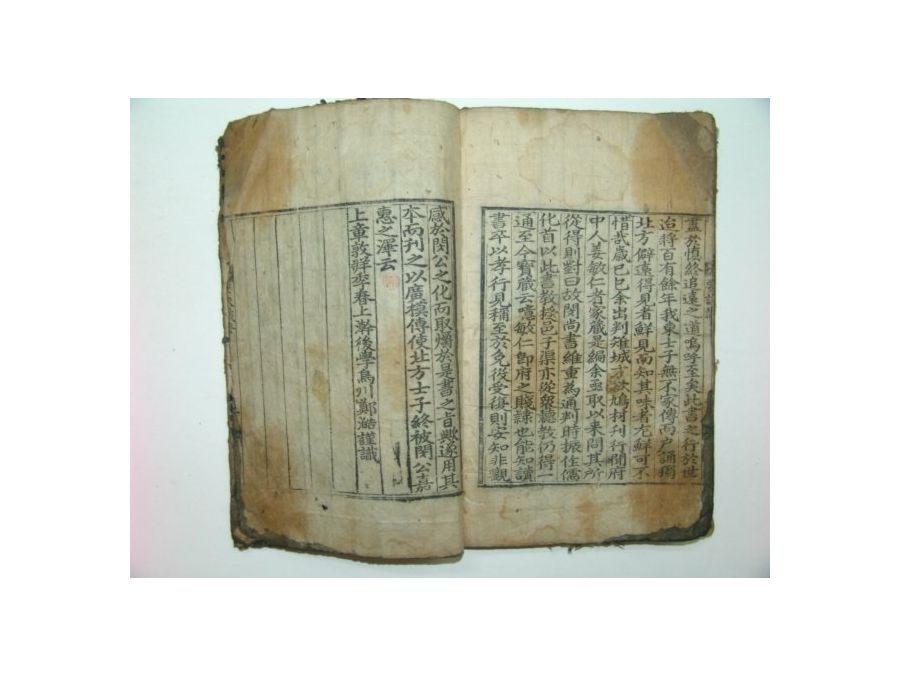 盡於愼終追遠之道嗚呼至矣此書之行於世
迨將百有餘年我東士子無不家傳而户誦獨
北方僻遠得見者鮮見而知其味者尤鮮可不
惜哉歲已巳余出判雉城方欲鳩材刊行聞府
中人姜敏仁者家藏是編余亟取以来問其所
從得則對曰故閔尚書維重為通判時振作儒
化首以此書教授邑子渠亦從衆聽教仍得一
通至今寶藏云噫敏仁卽府之賤隷也能知讀
書卒以孝行見稱至於免役受復則安知非觀
感於閔公之化而取爛於是書之旨歟遂用其
本而刊之以廣模傳使北方士子終被閔公嘉
惠之澤云
上章敦牂季春上澣後學烏川鄭澔謹識